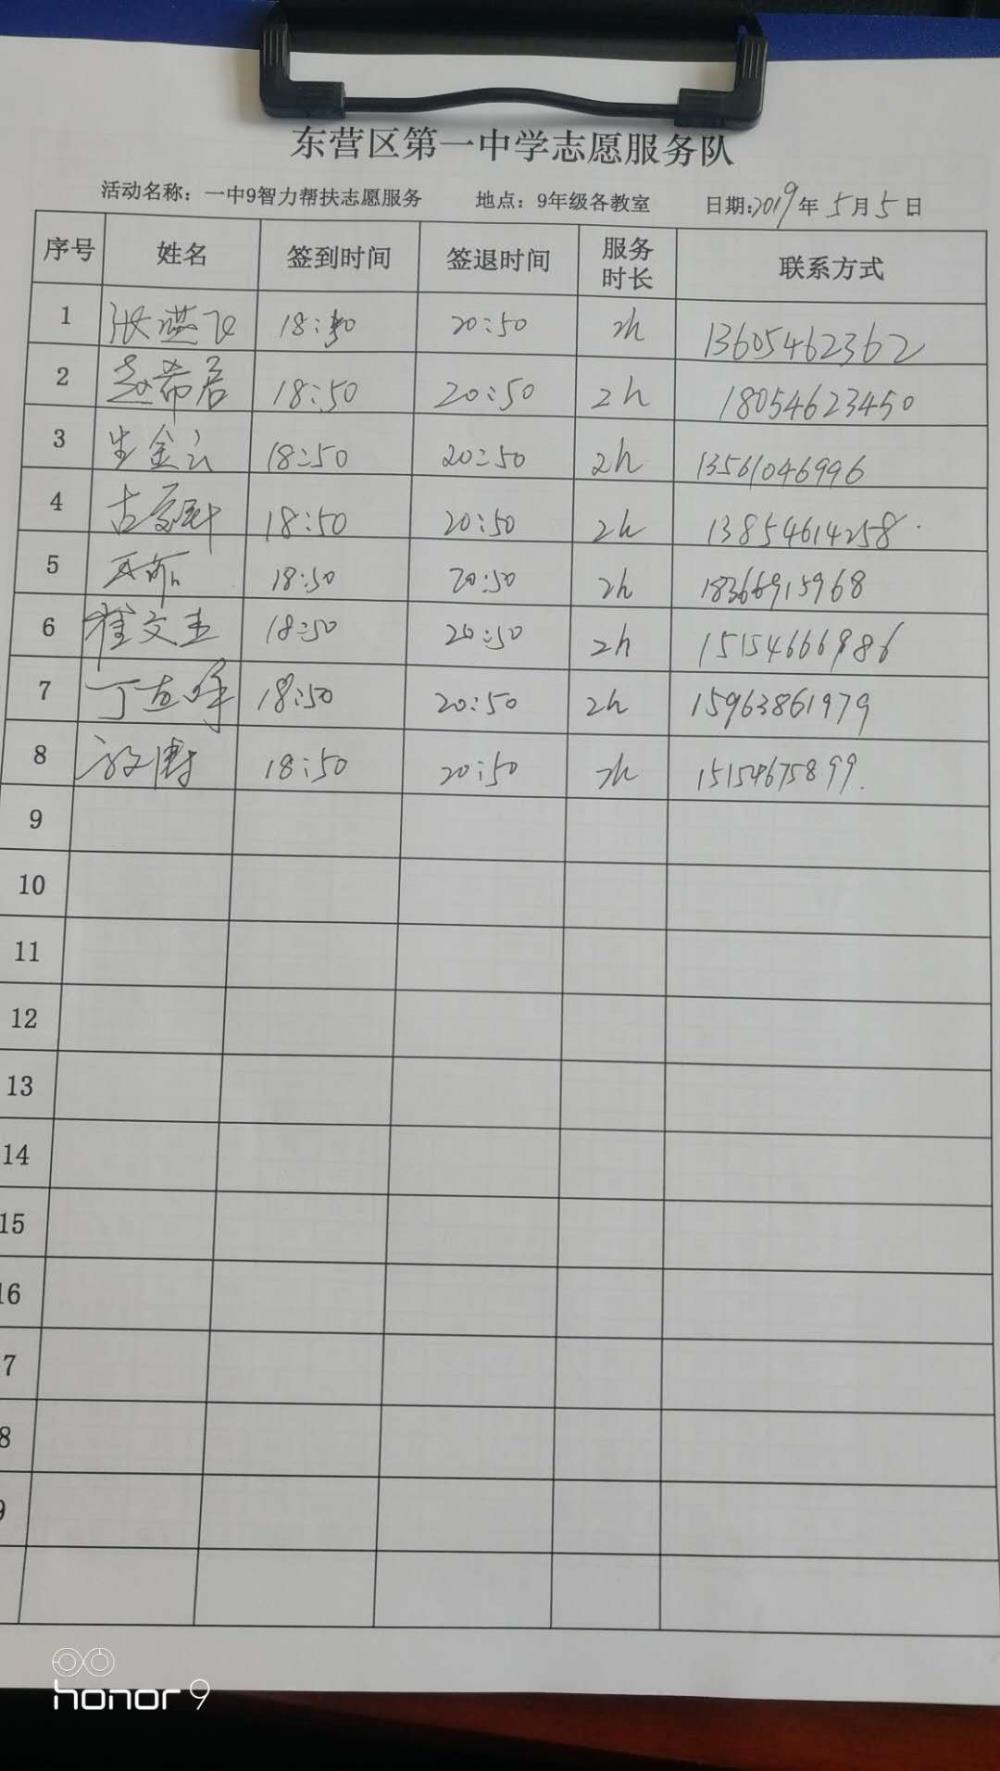 东营区第一中学志愿服务队
活动名称：一中9智力帮扶志愿服务 地点：9年级各教室 日期:2019年5月5日
序号 姓名 签到时间 签退时间 服务时长 联系方式
1 张燕飞 18:50 20:50 2h 13605462362
2 赵希君 18:50 20:50 2h 18054623450
3 生金云 18:50 20:50 2h 13561046996
4 18:50 20:50 2h 13854614258
5 18:50 20:50 2h 18366915968
6 崔文玉 18:50 20:50 2h 15154666986
7 18:50 20:50 2h 15963861979
8 18:50 20:50 2h 15154675899.
9
10
11
12
13
14
15
16
7
8
9
honor 9